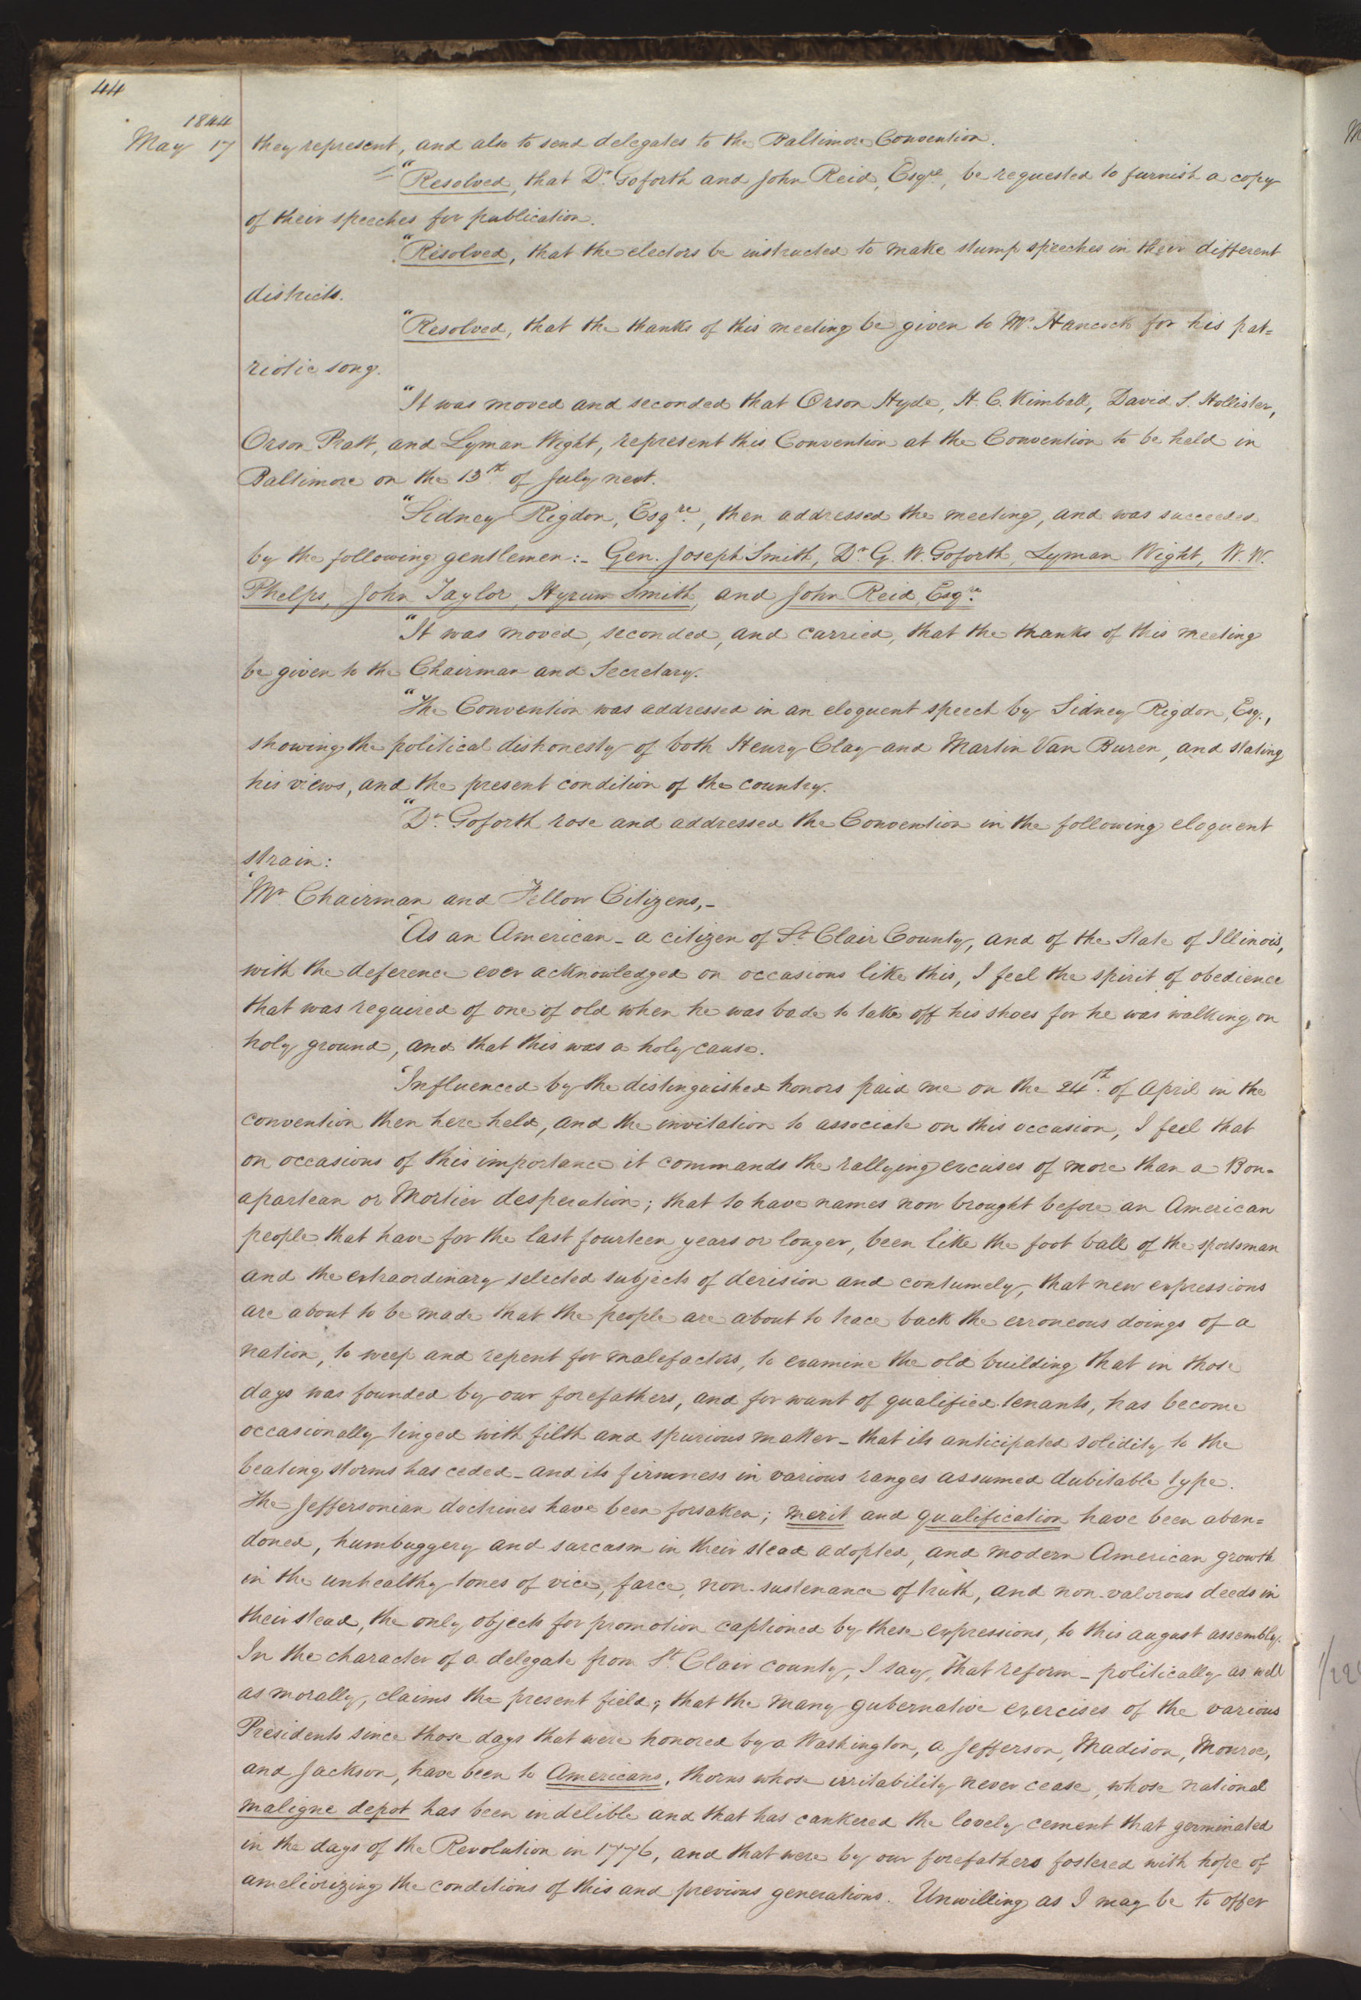 44
1844
May 17 they represent, and also to send delegates to the Baltimore Convention.
"Resolved, that Dr. Goforth and John Reid, Esqre, be requested to furnish a copy
of their speeches for publication.
"Resolved, that the electors be instructed to make stump speeches in their different
districts.
"Resolved, that the thanks of this meeting be given to Mr. Hancock for his pat=
riotic song.
"It was moved and seconded that Orson Hyde, H. C. Kimball, David S. Hollister,
Orson Pratt, and Lyman Wight, represent this Convention at the Convention to be held in
Baltimore on the 13th of July next.
"Sidney Rigdon, Esqre., then addressed the meeting, and was succeeded
by the following gentlemen:- Gen. Joseph Smith, Dr G. W. Goforth, Lyman Wight, W. W.
Phelps, John Taylor, Hyrum Smith, and John Reid, Esqre
"It was moved, seconded, and carried, that the thanks of this meeting
be given to the Chairman and Secretary.
"The Convention was addressed in an eloquent speech by Sidney Rigdon, Esq.,
showing the political dishonesty of both Henry Clay and Martin Van Buren, and stating
his views, and the present condition of the country.
"Dr. Goforth rose and addressed the Convention in the following eloquent
strain:
'Mr Chairman and Fellow Citizens,-
'As an American - a citizen of St. Clair County, and of the State of Illinois,
with the deference ever acknowledged on occasions like this, I feel the spirit of obedience
that was required of one of old when he was bade to take off his shoes for he was walking on
holy ground, and that this was a holy cause.
'Influenced by the distinguished honors paid me on the 24th. of April in the
convention then here held, and the invitation to associate on this occasion, I feel that
on occasions of this importance it commands the rallying excuses of more than a Bon=
apartean or Mortier desperation; that to have names now brought before an American
people that have for the last fourteen years or longer, been like the foot ball of the sportsman
and the extraordinary selected subjects of derision and contumely, that new expressions
are about to be made that the people are about to trace back the erroneous doings of a
nation, to weep and repent for malefactors, to examine the old building that in those
days was founded by our forefathers, and for want of qualified tenants, has become
occasionally tinged with filth and spurious matter - that its anticipated solidity to the
beating storms has ceded - and its firmness in various ranges assumed dubitable type.
The Jeffersonian doctrines have been forsaken; merit and qualification have been aban=
doned, humbuggery and sarcasm in their stead adopted, and modern American growth
in the unhealthy tones of vice, farce, non-sustenance of truth, and non-valorous deeds in
their stead, the only objects for promotion captioned by these expressions, to this august assembly.
In the character of a delegate from St. Clair county, I say, that reform - politically as well
as morally, claims the present field; that the many gubernative exercises of the various
Presidents since those days that were honored by a Washington, a Jefferson, Madison, Monroe,
and Jackson, have been to Americans, thorns whose irritability never cease, whose national
maligne depot has been indelible and that has cankered the lovely cement that germinated
in the days of the Revolution in 1776, and that were by our forefathers fostered with hope of
ameliorizing the conditions of this and previous generations. Unwilling as I may be to offer